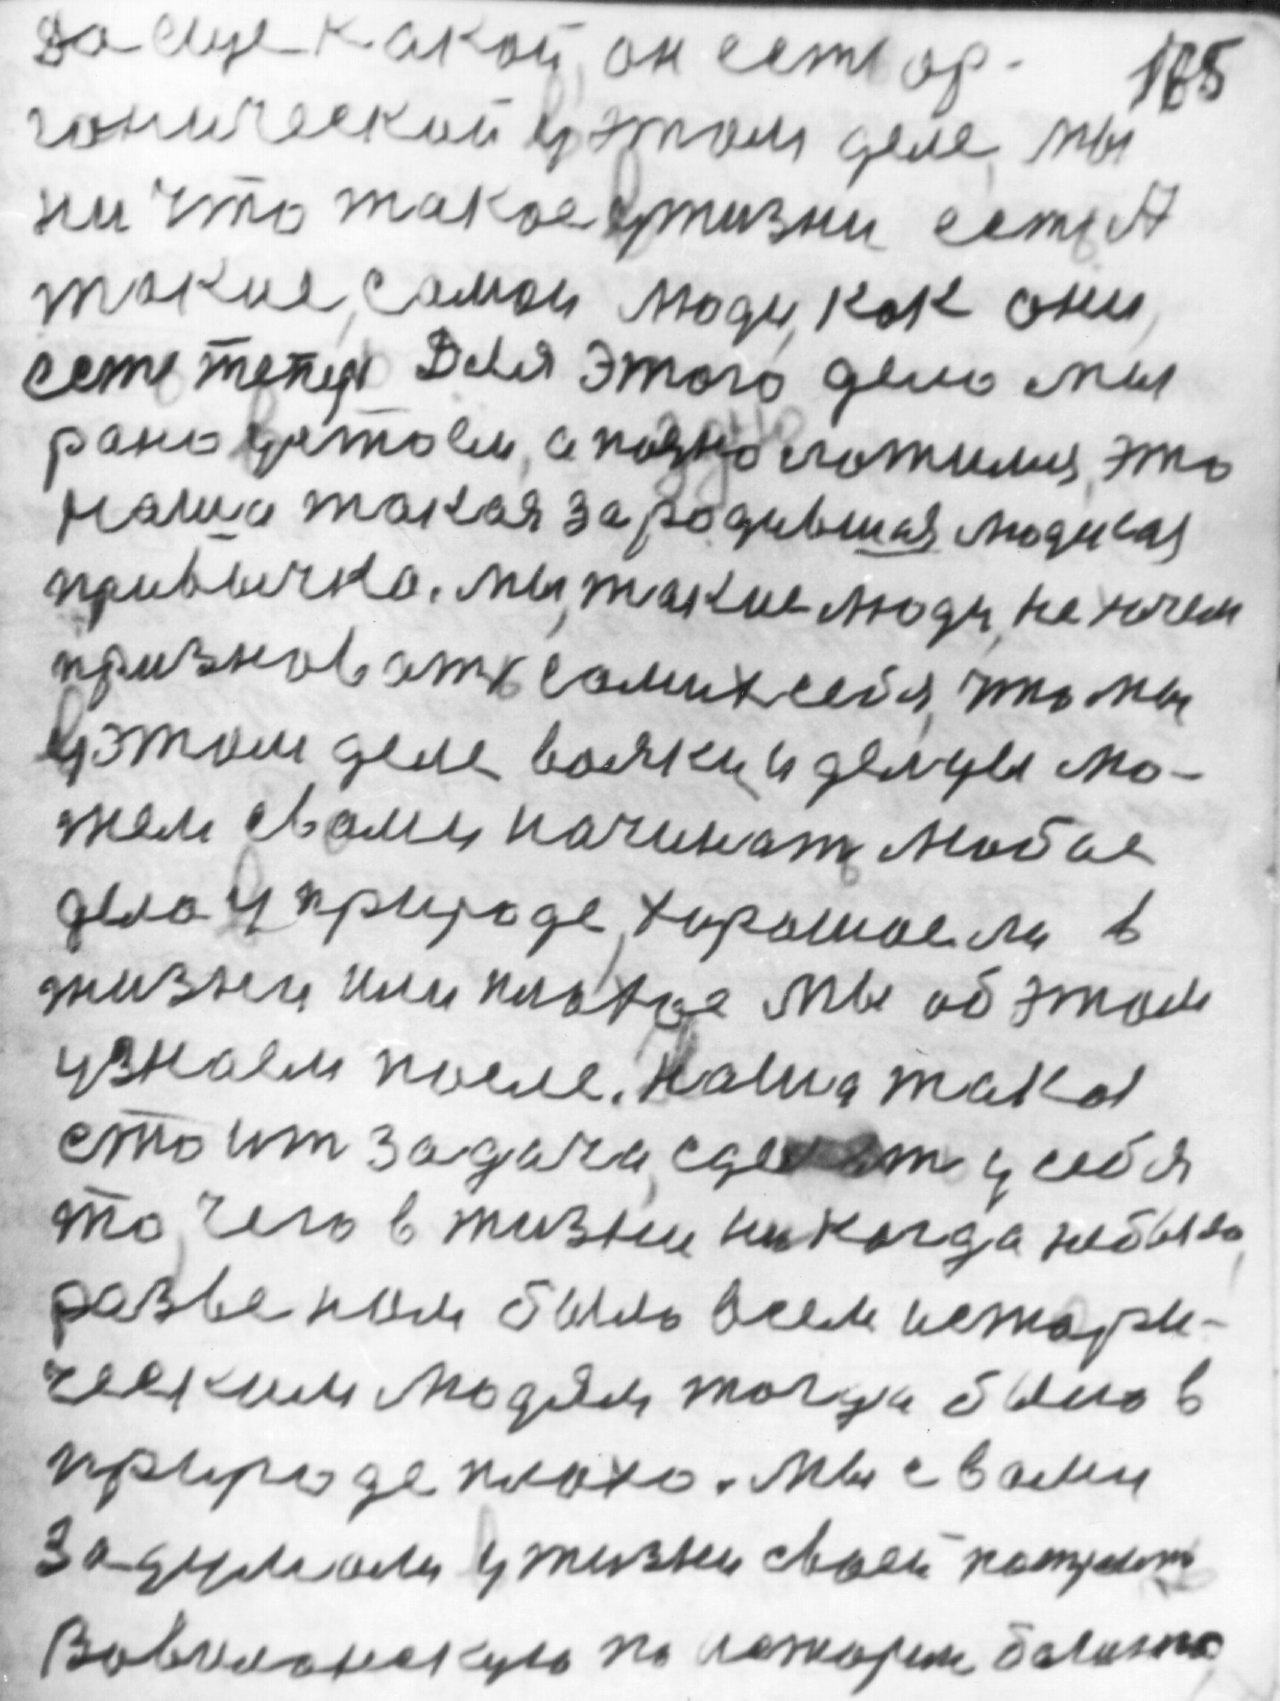 165
Да еще какой, он есть ор-
ганической у этом деле, мы
ни что такое у жизни есть А
такие, самои люди, как они,
есть тепер Для этого дело мы
рано устоем, а поздно ложимся, это
наша такая зародившая людская
привычка. Мы, такие люди, не хочем
признавать самих себя, что мы
у этом деле вояки, и дельцы мо-
жем с вами начинать любое
дело у природе, хорошое ли в
жизни или плохое мы об этом
узнаем после. Наша така
стоит задача, сделать у себя
то, чего в жизни никогда небыло,
разве нам было всем истори-
ческим людям тогда было в
природе плохо. Мы с вами
задумали у жизни своей
Вавилонскую по истории